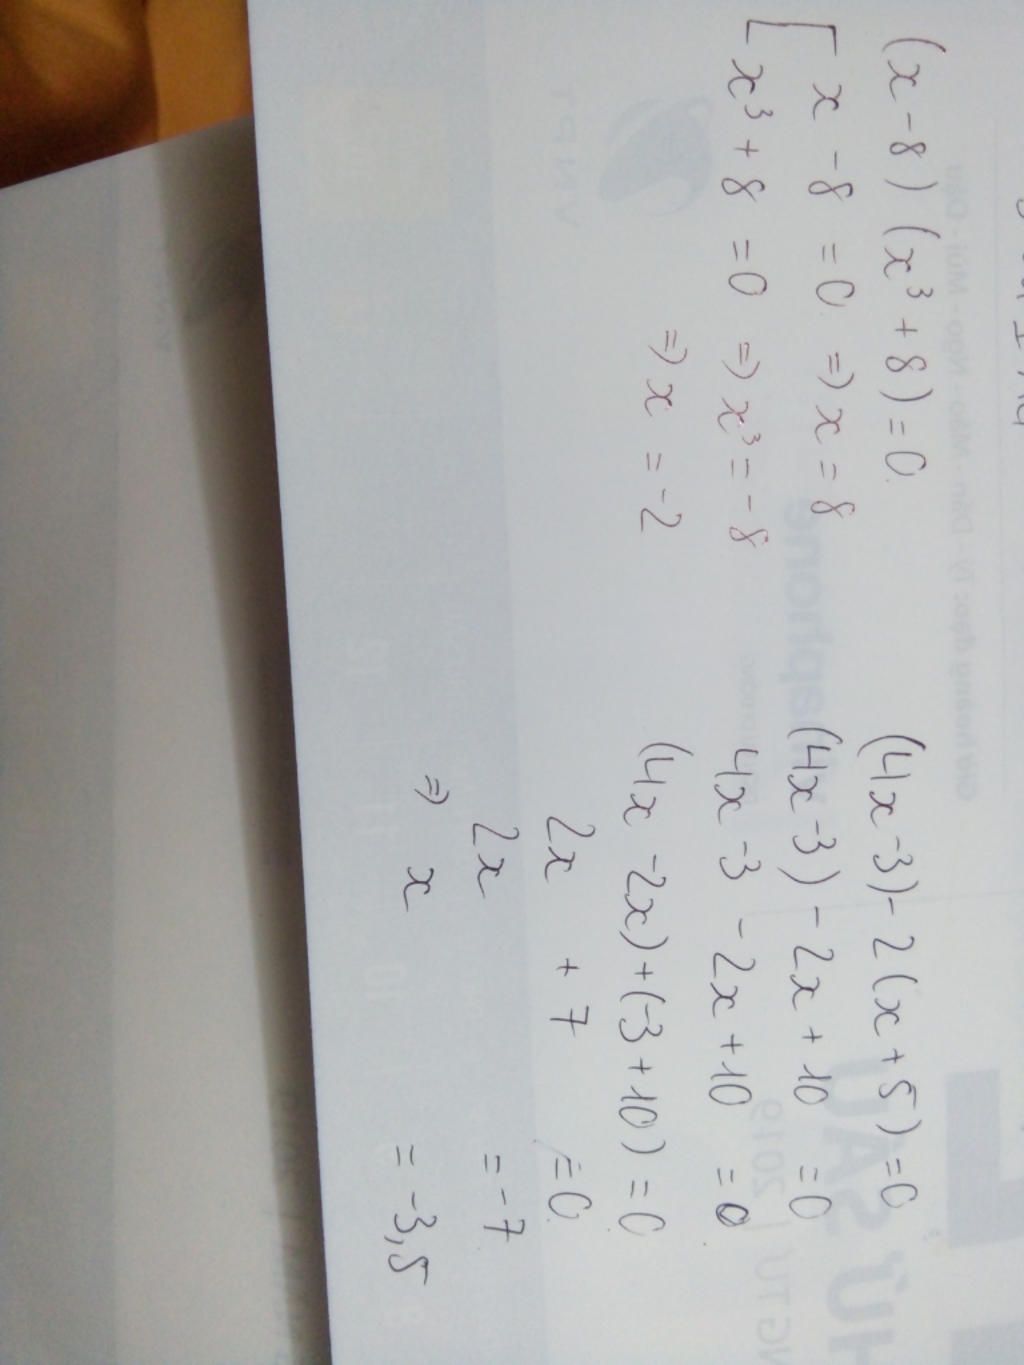 (x - 8) (x³ + 8) = 0
x - 8 = 0 => x = 8
x³ + 8 = 0 => x³ = - 8
=> x = -2
(4x - 3) - 2 (x + 5) = 0
(4x - 3) - 2x + 10 = 0
4x - 3 - 2x + 10 = 0
(4x - 2x) + (-3 + 10) = 0
2x + 7 = 0
2x = -7
=> x = -3,5